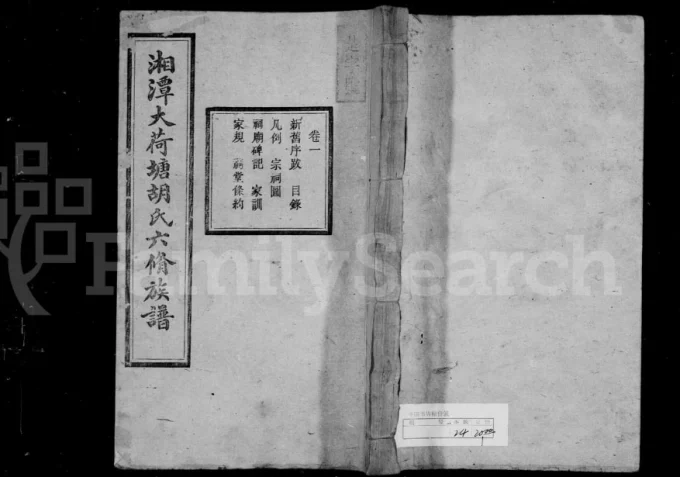 湘潭大荷塘胡氏六脩族譜
卷一
新舊序跋 目錄
凡例 宗祠圖
祠廟碑記 家訓
家規 祠堂條約
FamilySearch